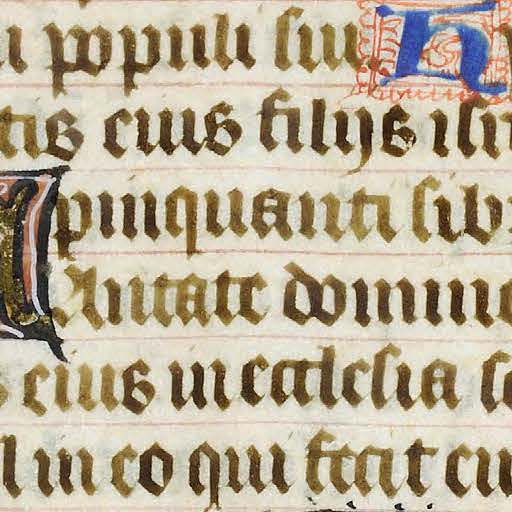 u populi sui H
tis eius filijs isr
pinquanti sib
Antate domino
s eius in ecclesia s
l in eo qui fecit eu